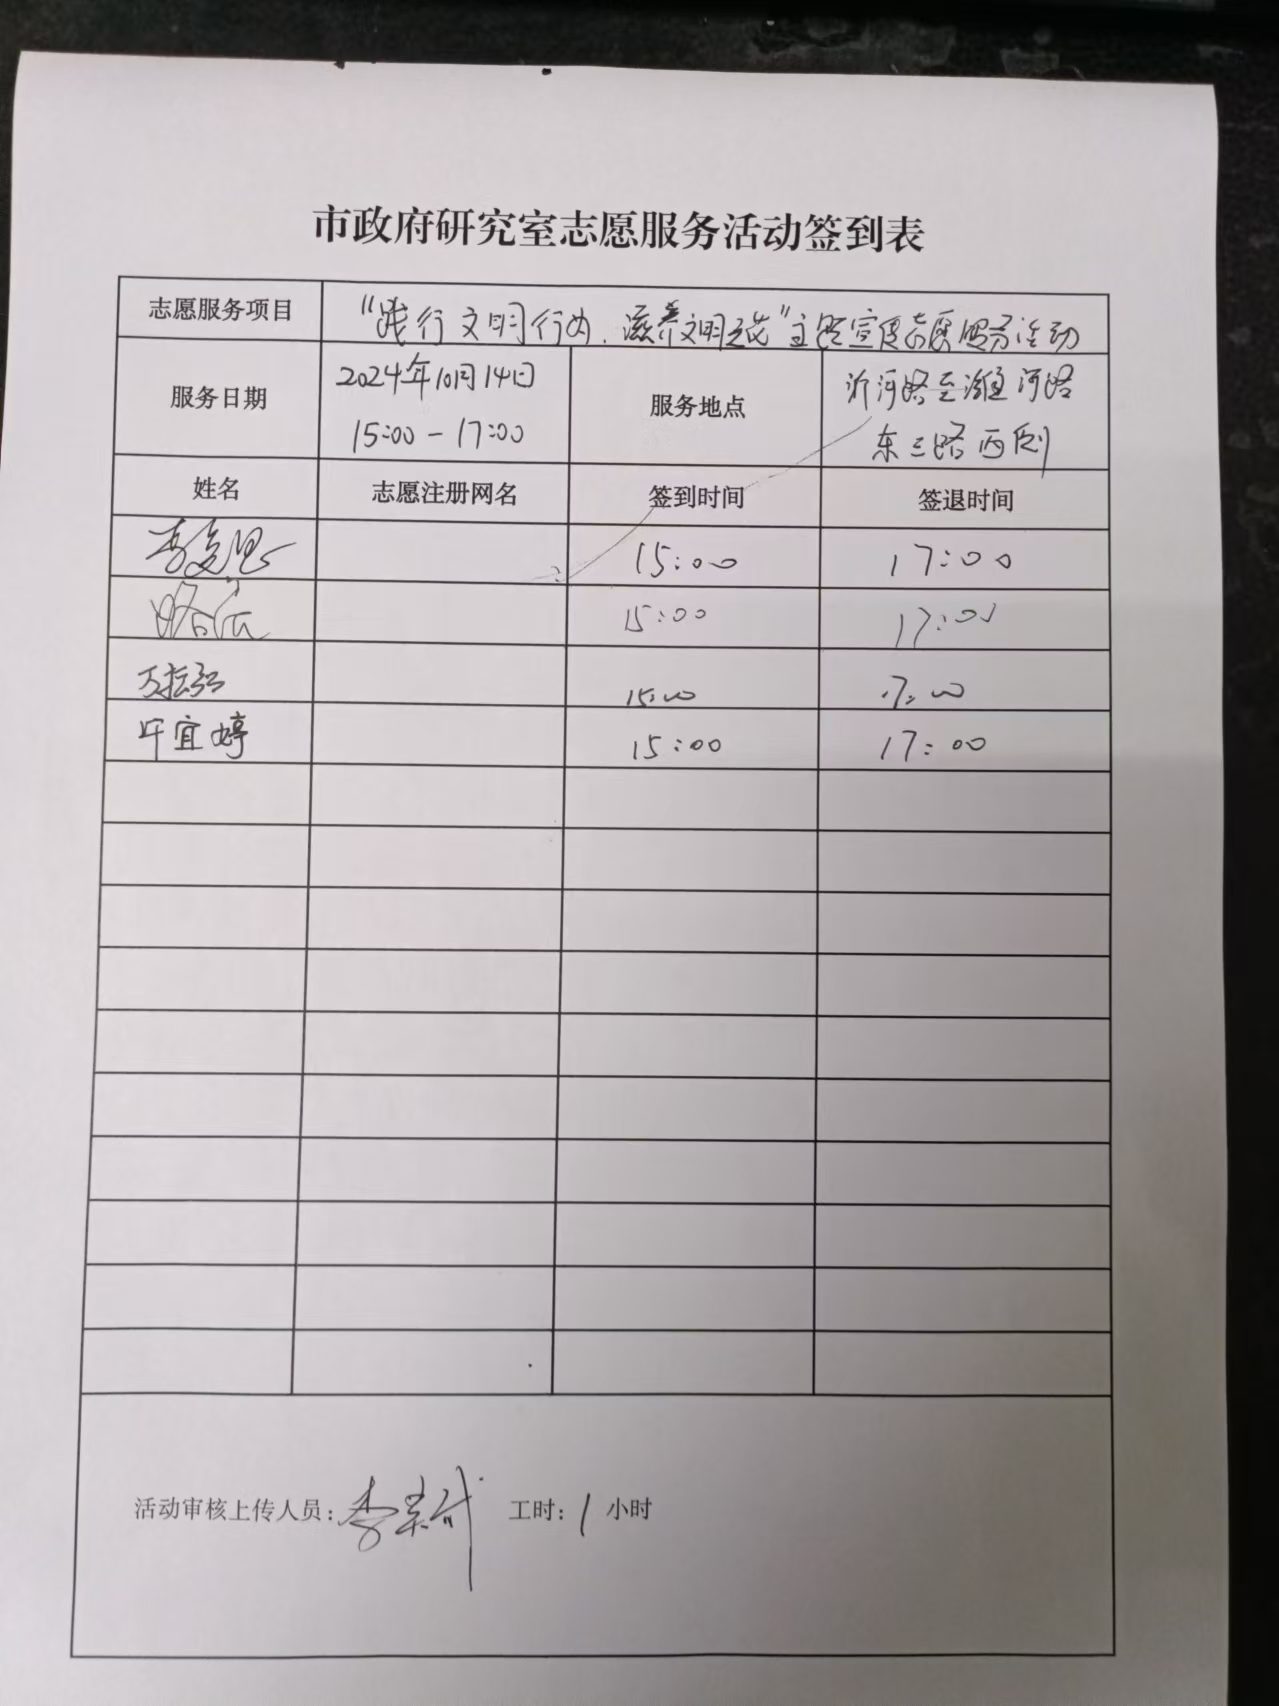 市政府研究室志愿服务活动签到表
志愿服务项目 “践行文明行为，滋养文明之花”主题宣传志愿服务活动
服务日期 2024年10月14日 15:00-17:00 服务地点 沂河路至潍河路东三路西侧
姓名 志愿注册网名 签到时间 签退时间
15:00 17:00
15:00 17:00
15:00 17:00
宜婷 15:00 17:00
活动审核上传人员： 李 工时：1小时